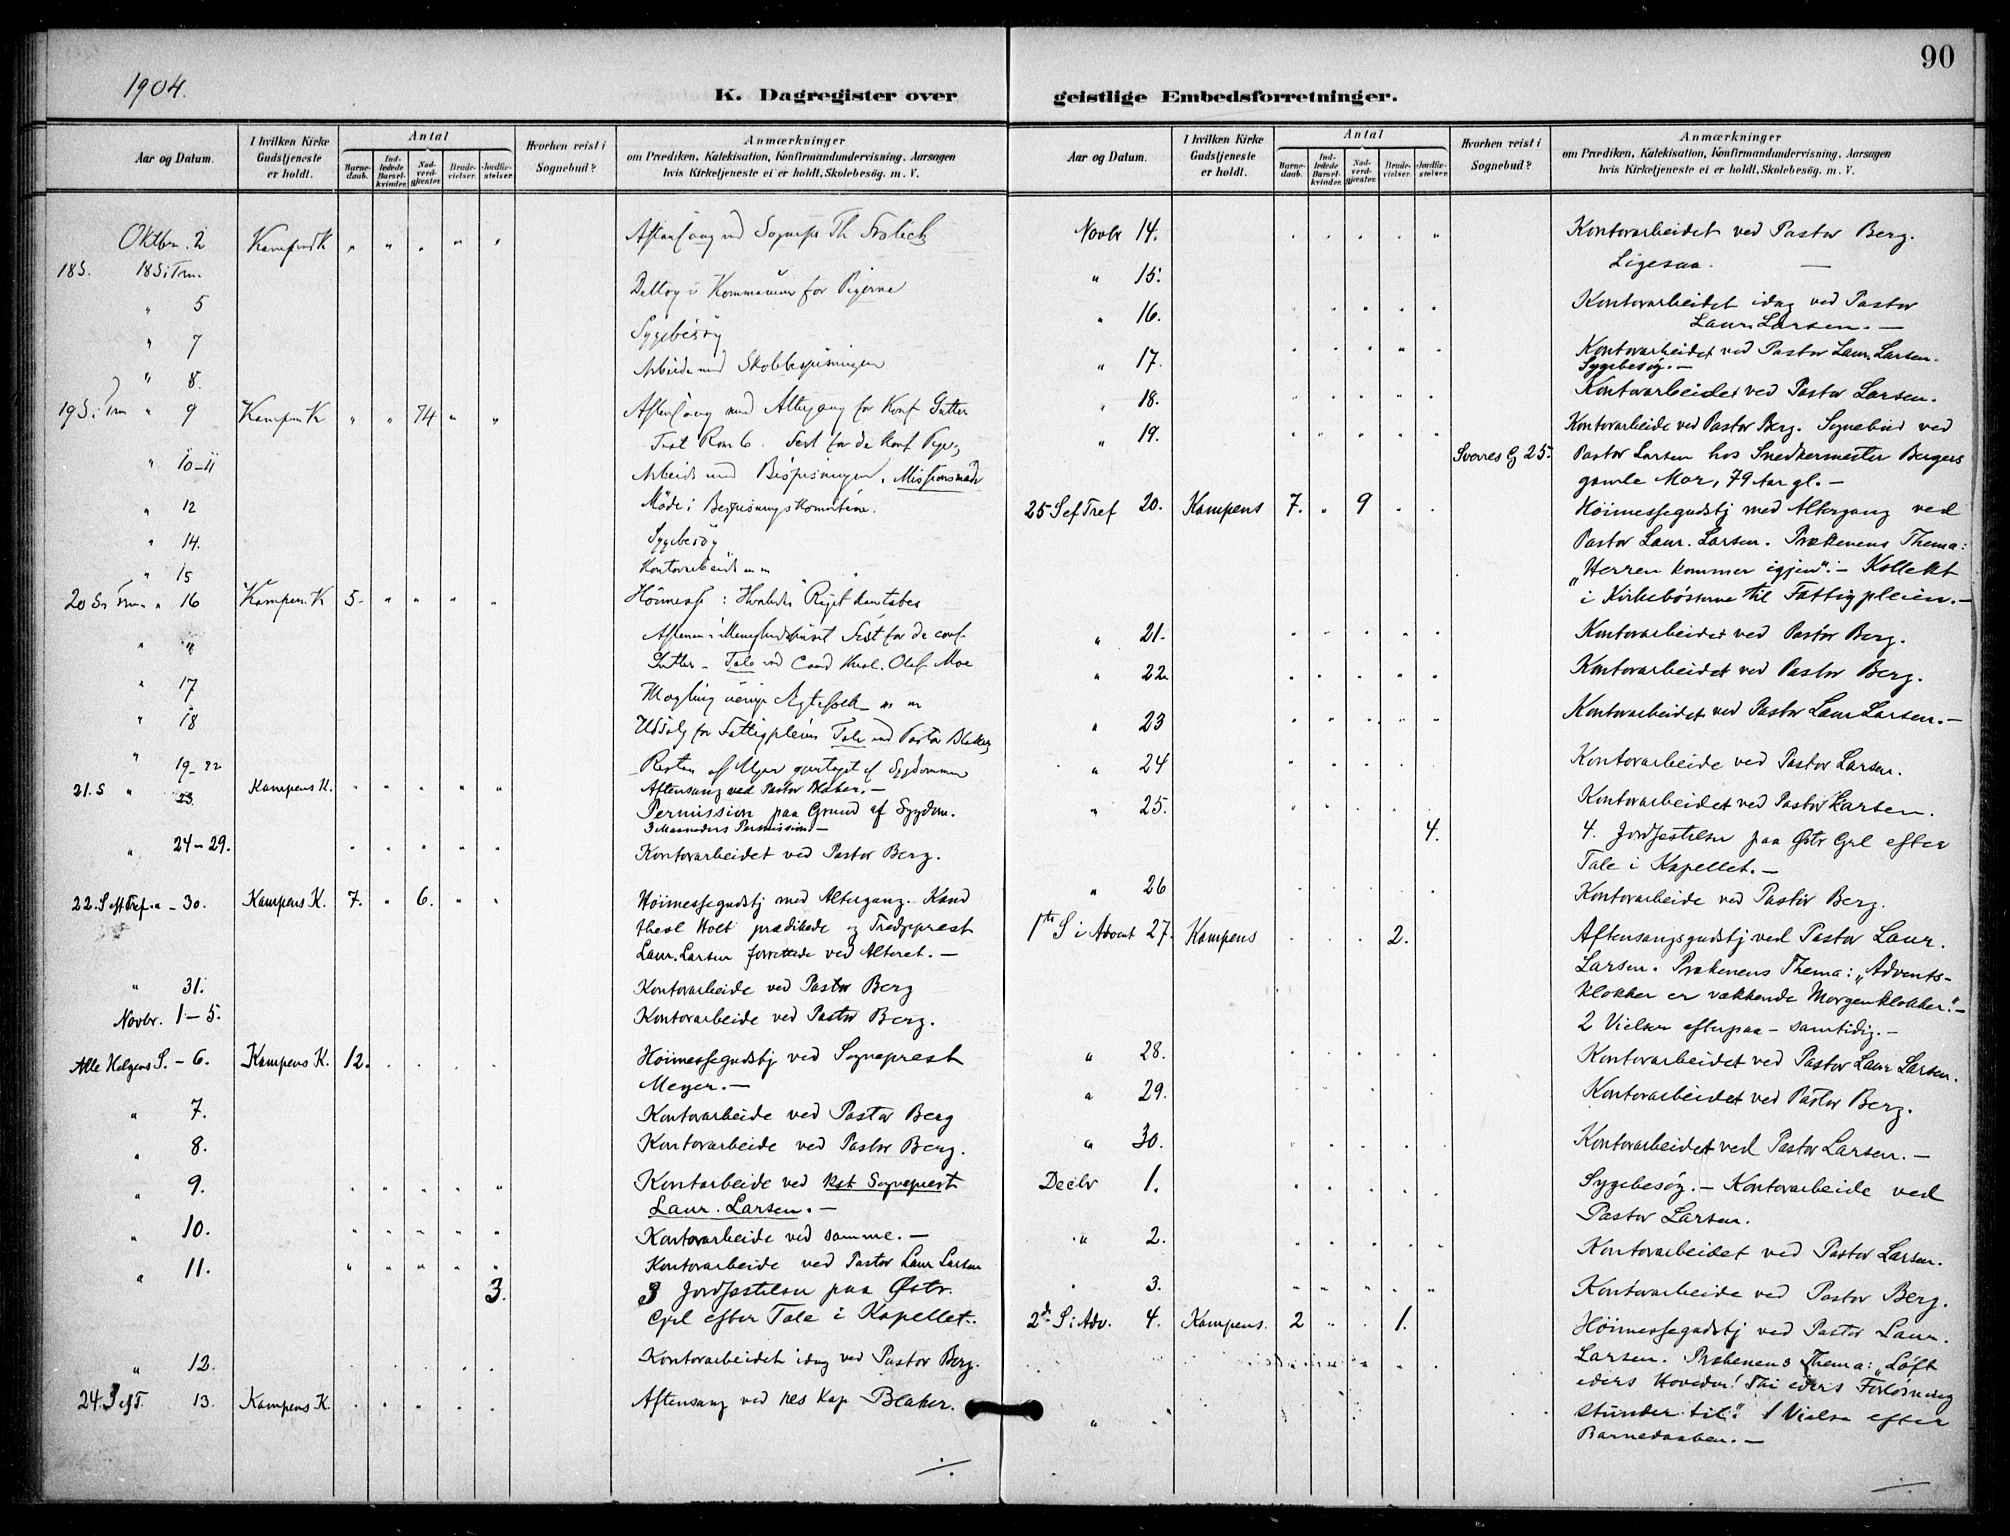 90
1904.
K. Dagregister over geistlige Embedsforretninger.
Aar og Datum.
I hvilken Kirke Gudstjeneste er holdt.
Antal
Barnedaab.
Indledede Barselkvinder.
Nadverdgjæster.
Brudevielser.
Jordfæstelser.
Hvorhen reist i Sognebud?
Anmærkninger
om Prædiken, Katekisation, Konfirmandundervisning, Aarsagen
hvis Kirketjeneste ei er holdt, Skolebesøg. m. V.
Oktbr. 2 Kampens K " " " " " Aftensang ved Sognepr Th Frölich
18 S. 18 S i Trin.
" 5 Deltog i Kommunion for Pigerne
" 7 Sygebesøg
" 8. Arbeide med Skolebespisningen
19 S. i Trin " 9 Kampens K " " 74 " " Aftensang med Altergang for Konf Gutter
Text Rom 6. Fest for de Konf Piger
" 10-11 Arbeide med Bespisningen. Missionsmøde
" 12 Møde i Bespisningskomiteen.
" 14. Sygebesøg
" 15 Kontorarbeide m m
20 S. Trin " 16 Kampens K 5 " " " " Höimesse: Himlenes Riget
Aftenen i Menighedshuset Fest for de conf.
Gutter - Tale ved Cand theol. Olaf Moe
" 17 Mægling Agtefolk m m
" 18 Udsalg for Fattigpleien Tale ved Pastor Blaker
" 19-22 Resten af Ugen af Sygdommen
21. S " 23. Kampens K. " " " " " Aftensang ved Pastor Blaker. —
Permission paa Grund af Sygdom.
3 Maaneders Permission —
" 24-29. " " " " " Kontorarbeidet ved Pastor Berg.
22. S eft Tref. " - 30. Kampens K. 7. " 6. " " Høimessegudstj med Altergang. Kand
theol Holt prædikede og Tredjeprest
Laur. Larsen forrettede ved Alteret. —
" 31. Kontorarbeide ved Pastor Berg
Novbr. 1-5. Kontorarbeide ved Pastor Berg.
Alle Helgens S. - 6. Kampens K. 12. . . . . Høimessegudstj ved Sogneprest
Meyer. —
" 7. Kontorarbeide ved Pastor Berg
" 8. Kontorarbeide ved Pastor Berg.
" 9. " " " " " Kontarbeide ved kst Sogneprest
Laur. Larsen. —
" 10. " " " " " Kontorarbeide ved samme. —
" 11. " " " " " Kontorarbeide ved Pastor Laur Larsen
3. 3 Jordfæstelser paa Østr.
Grl efter Tale i Kapellet.
" 12. Kontorarbeidet idag ved Pastor Berg.
24. S ef T. 13. Kampens K. . . . . . Aftensang ved res Kap Blaker.
Aar og Datum.
I hvilken Kirke Gudstjeneste er holdt.
Antal
Barnedaab.
Indledede Barselkvinder.
Nadverdgjæster.
Brudevielser.
Jordfæstelser.
Hvorhen reist i Sognebud?
Anmærkninger
om Prædiken, Katekisation, Konfirmandundervisning, Aarsagen
hvis Kirketjeneste ei er holdt, Skolebesøg. m. V.
Novbr 14. Kontorarbeidet ved Pastor Berg.
" 15. Ligesaa. —
" 16. Kontorarbeidet idag ved Pastor
Laur. Larsen. —
" 17. Kontorarbeidet ved Pastor Laur. Larsen.
Sygebesøg. —
" 18. Kontorarbeidet ved Pastor Larsen.
" 19. Kontorarbeide ved Pastor Berg. Sognebud ved
Sverres G 25. Pastor Larsen hos Snedkermester Bergers
gamle Mor, 79 Aar gl. —
25 S ef Tref 20. Kampens 7. " 9 . . Høimessegudstj med Altergang ved
Pastor Laur. Larsen. Prækenens Thema:
„Herren kommer igjen". — Kollekt
i Kirkebøsserne til Fattigpleien. —
" 21. Kontorarbeidet ved Pastor Berg.
" 22 Kontorarbeidet ved Pastor Berg.
" 23 Kontorarbeidet ved Pastor Laur Larsen. —
" 24 Kontorarbeide ved Pastor Larsen.
" 25. Kontorarbeidet ved Pastor Larsen.
4. 4. Jordfæstelser paa Østr Grl efter
Tale i Kapellet. —
" 26 Kontorarbeide ved Pastor Berg.
1ste S i Advent 27. Kampens . . . 2. Aftensangsgudstj ved Pastor Laur.
Larsen. Prækenens Thema: „Advents-
klokker er vækkende Morgenklokker". —
2 Vielser efterpaa - samtidig. —
" 28. Kontorarbeidet ved Pastor Laur Larsen.
" 29. Kontorarbeidet ved Pastor Berg.
" 30. Kontorarbeidet ved Pastor Larsen. —
Decbr 1. Sygebesøg. — Kontorarbeide ved
Pastor Larsen.
" 2. Kontorarbeidet ved Pastor Larsen.
" 3. Kontorarbeide ved Pastor Berg.
2den S i Adv. 4. Kampens. 2 " . 1. Høimessegudstj ved Pastor Laur.
Larsen. Prækenens Thema: „Løft
eders Hoveder! Thi eders Forløsning
stunder til." 1 Vielse efter
Barnedaaben. —